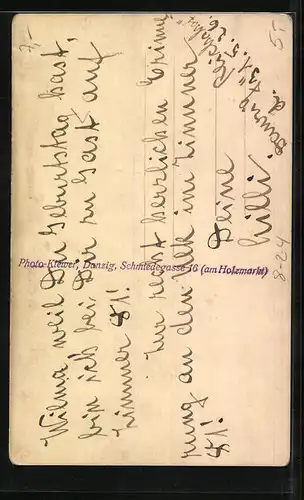 Wilma weil Du Geburtstag hast,
bin ich bei Dir zu Gast auf
Zimmer 81!
Zur recht herzlichen Erinne
rung an den Ulk im Zimmer
81!
Deine
Lilli.
Danzig
Photo-Kiewer, Danzig, Schmiedegasse 16 (am Holzmarkt)
7,-
5,-
8-24